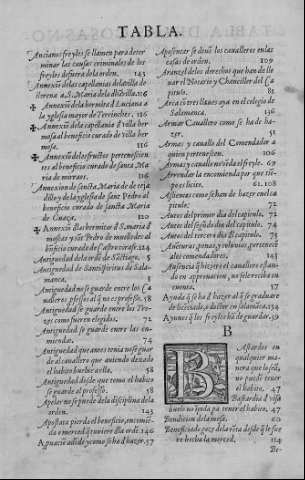 TABLA.
Ancianos freyles se llamen para deter
minar las causas criminales de los
freyles defuera dela orden. 143
Annexió delas capellanias dela villa de
llerena a .S. Maria dela dicha villa. 116
Annexió dela hermita d Luciana a
la yglesia mayor de Terrinches. 116
Annexió dela capellania d villa her
mosa al beneficio curado de villa her
mosa. 116
Annexió de los fructos pertenesciẽn
tes al beneficio curado de sancta Ma
ria de 116
Annexion de sancta Maria de
y dela yglesia de sant Pedro al
beneficio curado de sancta Maria
de 120
Annexió d las hermitas d .S. maria d
y sant Pedro de al
beneficio curado de 124
Antiguedad dela ordẽ de Sãctiago. 5
Antiguedad de Santispiritus de Sala
manca. 5
Antiguedad no se guarde entre los Ca
ualleros professos al q no es professo. 58
Antiguedad se guarde entre los Tre
zes como fueren elegidos. 72
Antiguedad se guarde entre las en
comiendas. 74
Antiguedad que antes tenia no se guar
de al cauallero que auiendo dexado
el habito buelue a ella. 58
Antiguedad desde que tomo el habito
se guarde al professo. 58
Apelar no se puede dela disciplina dela
orden. 143
Apostata pierda el beneficio, encomiẽ
da o merced q tuuiere dla ordẽ. 146
Aguaciles como se hã d hazer. 57
Aposentar se deuẽ los caualleros en las
casas de orden. 109
Aranzel de los derechos que han de lle
uar el Notario y Chanciller del Ca
pitulo. 81
Arca cõ tres llaues aya en el colegio de
Salamanca. 136
Armar Cauallero como se ha de ha-
zer. 51
Armas y cauallo del Comendador a
quien pertenescen. 106
Armas y cauallo no se dã el freyle. 69
Arrendar la encomienda por que tiẽ
pos es licito. 61. 108
Assientos como se hã de hazer en el ca
pitulo. 72
Autos del primer dia del capitulo. 72
Autos del segũdo dia del capitulo. 74
Autos del tercero dia d capitulo. 75
Auẽturas, penas, y coluntos, pertenescẽ
a los comendadores. 143
Ausencia q hiziere el cauallero estan-
do en aprouacion, no se le resciba en
cuenta. 57
Ayuda q se ha d hazer al q se graduare
de licenciado, o doctor en Salamãca. 134
Ayunos q los freyles hã de guardar. 39
B
Bastardos en
qualquier ma
nera que lo seã,
no puedẽ tener
el habito. 47
Bastardia d vis
abuelo no ipida pa tener el habito. 47
Bendicion dela mesa. 60
Beneficio goze dela rẽta desde q le fue
re hecha la merced. 114
Be-